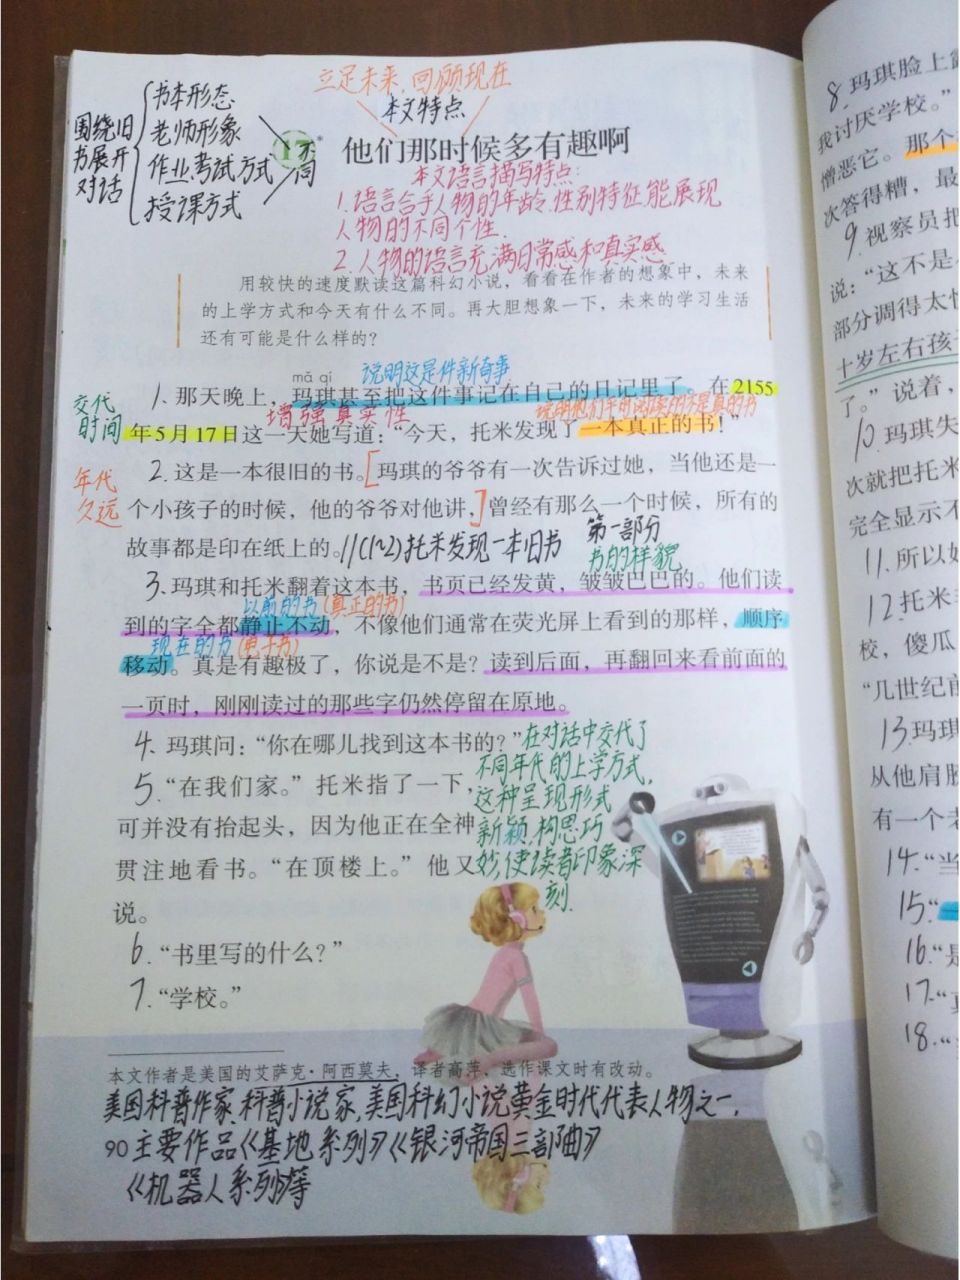 立足未来,回顾现在
本文特点
围绕旧
书展开
对话
书本形态
老师形象
作业考试方式
授课方式
不同
17*
他们那时候多有趣啊
本文语言描写特点:
1.语言合乎人物的年龄.性别特征,能展现
人物的不同个性.
2.人物的语言充满日常感和真实感.
用较快的速度默读这篇科幻小说，看看在作者的想象中，未来
的上学方式和今天有什么不同。再大胆想象一下，未来的学习生活
还有可能是什么样的？
mǎ qí
说明这是件新奇事
1.那天晚上，玛琪甚至把这件事记在自己的日记里了。在2155
交代
时间
增强真实性
说明他们平时阅读的不是真的书
年5月17日这一天她写道：“今天，托米发现了一本真正的书！”
年代
久远
2.这是一本很旧的书。[玛琪的爷爷有一次告诉过她，当他还是一
个小孩子的时候，他的爷爷对他讲，]曾经有那么一个时候，所有的
故事都是印在纸上的。//(1~2)托米发现一本旧书
第一部分
书的样貌
3.玛琪和托米翻着这本书，书页已经发黄，皱皱巴巴的。他们读
以前的书(真正的书)
到的字全都静止不动，不像他们通常在荧光屏上看到的那样，顺序
现在的书(电子书)
移动。真是有趣极了，你说是不是？读到后面，再翻回来看前面的
一页时，刚刚读过的那些字仍然停留在原地。
4.玛琪问：“你在哪儿找到这本书的？”
在对话中交代了
不同年代的上学方式,
这种呈现形式
新颖,构思巧
妙,使读者印象深
刻.
5.“在我们家。”托米指了一下，
可并没有抬起头，因为他正在全神
贯注地看书。“在顶楼上。”他又
说。
6.“书里写的什么？”
7.“学校。”
本文作者是美国的艾萨克·阿西莫夫，译者高萍，选作课文时有改动。
美国科普作家、科普小说家,美国科幻小说黄金时代代表人物之一,
90
主要作品《基地系列》《银河帝国三部曲》
《机器人系列》等
8.玛琪脸上
我讨厌学校。”
憎恶它。那个
次答得糟，最
9.视察员把
说：“这不是
部分调得太快
十岁左右孩子
了。”说着，
10.玛琪失
次就把托米
完全显示不
11.所以如
12.托米
校，傻瓜
“几世纪前
13.玛琪
从他肩膀
有一个老
14.“当
15.“
16.“是
17.“真
18.“